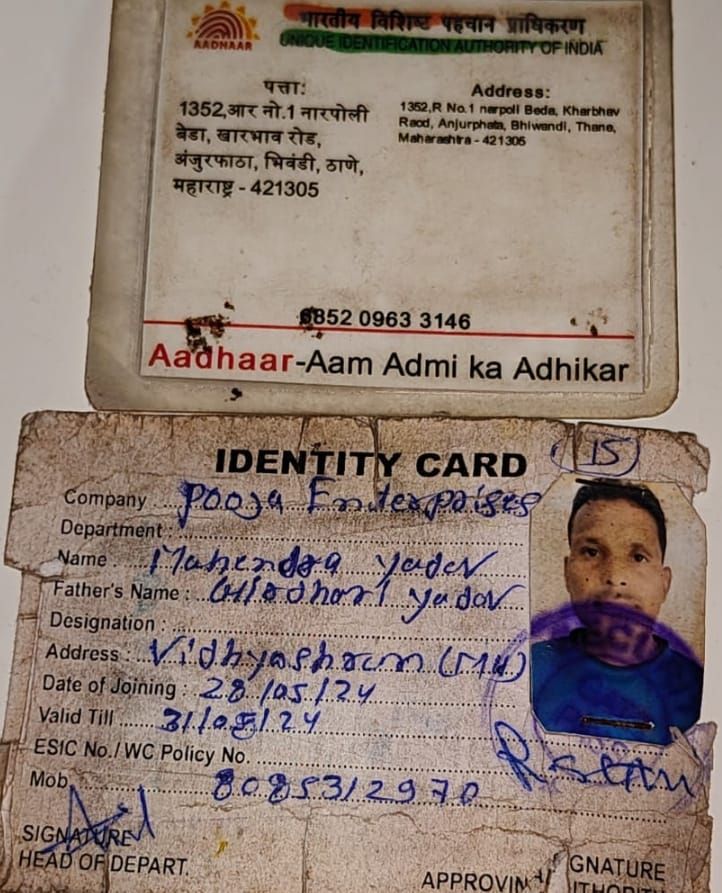 AADHAAR
भारतीय विशिष्ट पहचान प्राधिकरण
UNIQUE IDENTIFICATION AUTHORITY OF INDIA
पत्ता:
1352,आर नो.1 नारपोली
बेडा, खारभाव रोड,
अंजुरफाठा, भिवंडी, ठाणे,
महाराष्ट्र - 421305
Address:
1352,R No.1 narpoli Beda, Kharbhav
Raod, Anjurphata, Bhiwandi, Thane,
Maharashtra - 421305
852 0963 3146
Aadhaar-Aam Admi ka Adhikar
IDENTITY CARD
15
Company : Pooja Enterprises
Department :
Name : Mahendra Yadav
Father's Name : Yadav
Designation :
Address : Vidhyashram (MH)
Date of Joining : 28/05/24
Valid Till 31/05/24
ESIC No./WC Policy No.
Mob. 8085312970
SIGNATURE
HEAD OF DEPART.
SIGNATURE
APPROVING